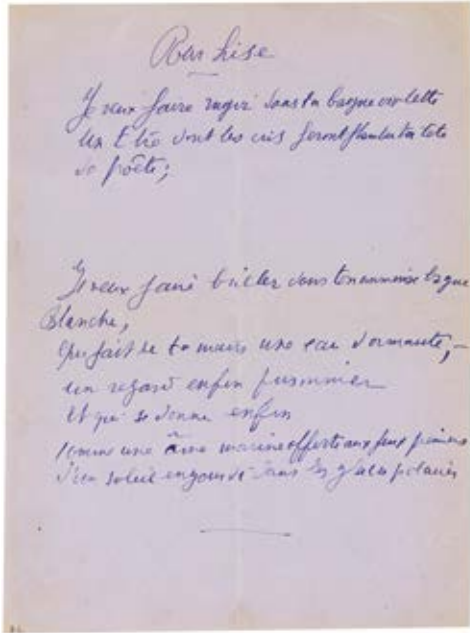 Pour Lise
Je veux faire rugir dans ta bague violette
Un Etre dont les cris feront flamber ta tete
de poète;
Je veux faire briller dans ton annulaire bague
Blanche,
Qui fait de ta main une eau dormante, -
un regard enfin prisonnier
Et qui se donne enfin
comme une âme marine offerte aux feux
d'un soleil engourdi dans les glaces polaires